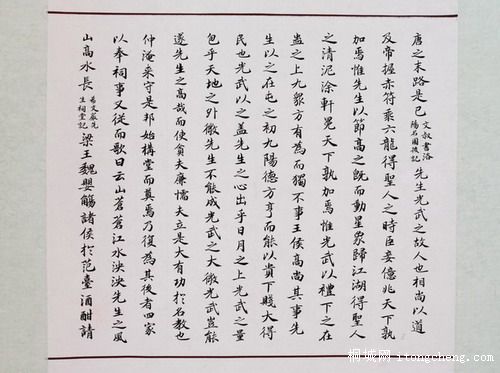 唐之末路是已文叔書洛陽名園後記先生光武之故人也相尚以道
及帝握赤符乘六龍得聖人之時臣妾億兆天下孰
加焉惟先生以節高之既而動星象歸江湖得聖人
之清泥塗軒冕天下孰加焉惟光武以禮下之在
蠱之上九眾方有為而獨不事王侯高尚其事先
生以之在屯之初九陽德方亨而能以貴下賤大得
民也光武以之蓋先生之心出乎日月之上光武之量
包乎天地之外微先生不能成光武之大微光武豈能
遂先生之高哉而使貪夫廉懦夫立是大有功於名教也
仲淹來守是邦始構堂而奠焉乃復為其後者四家
以奉祠事又從而歌曰云山蒼蒼江水泱泱先生之風
山高水長希文嚴先生祠堂記梁王魏嬰觴諸侯於范臺酒酣請
桐城网 itongcheng.com